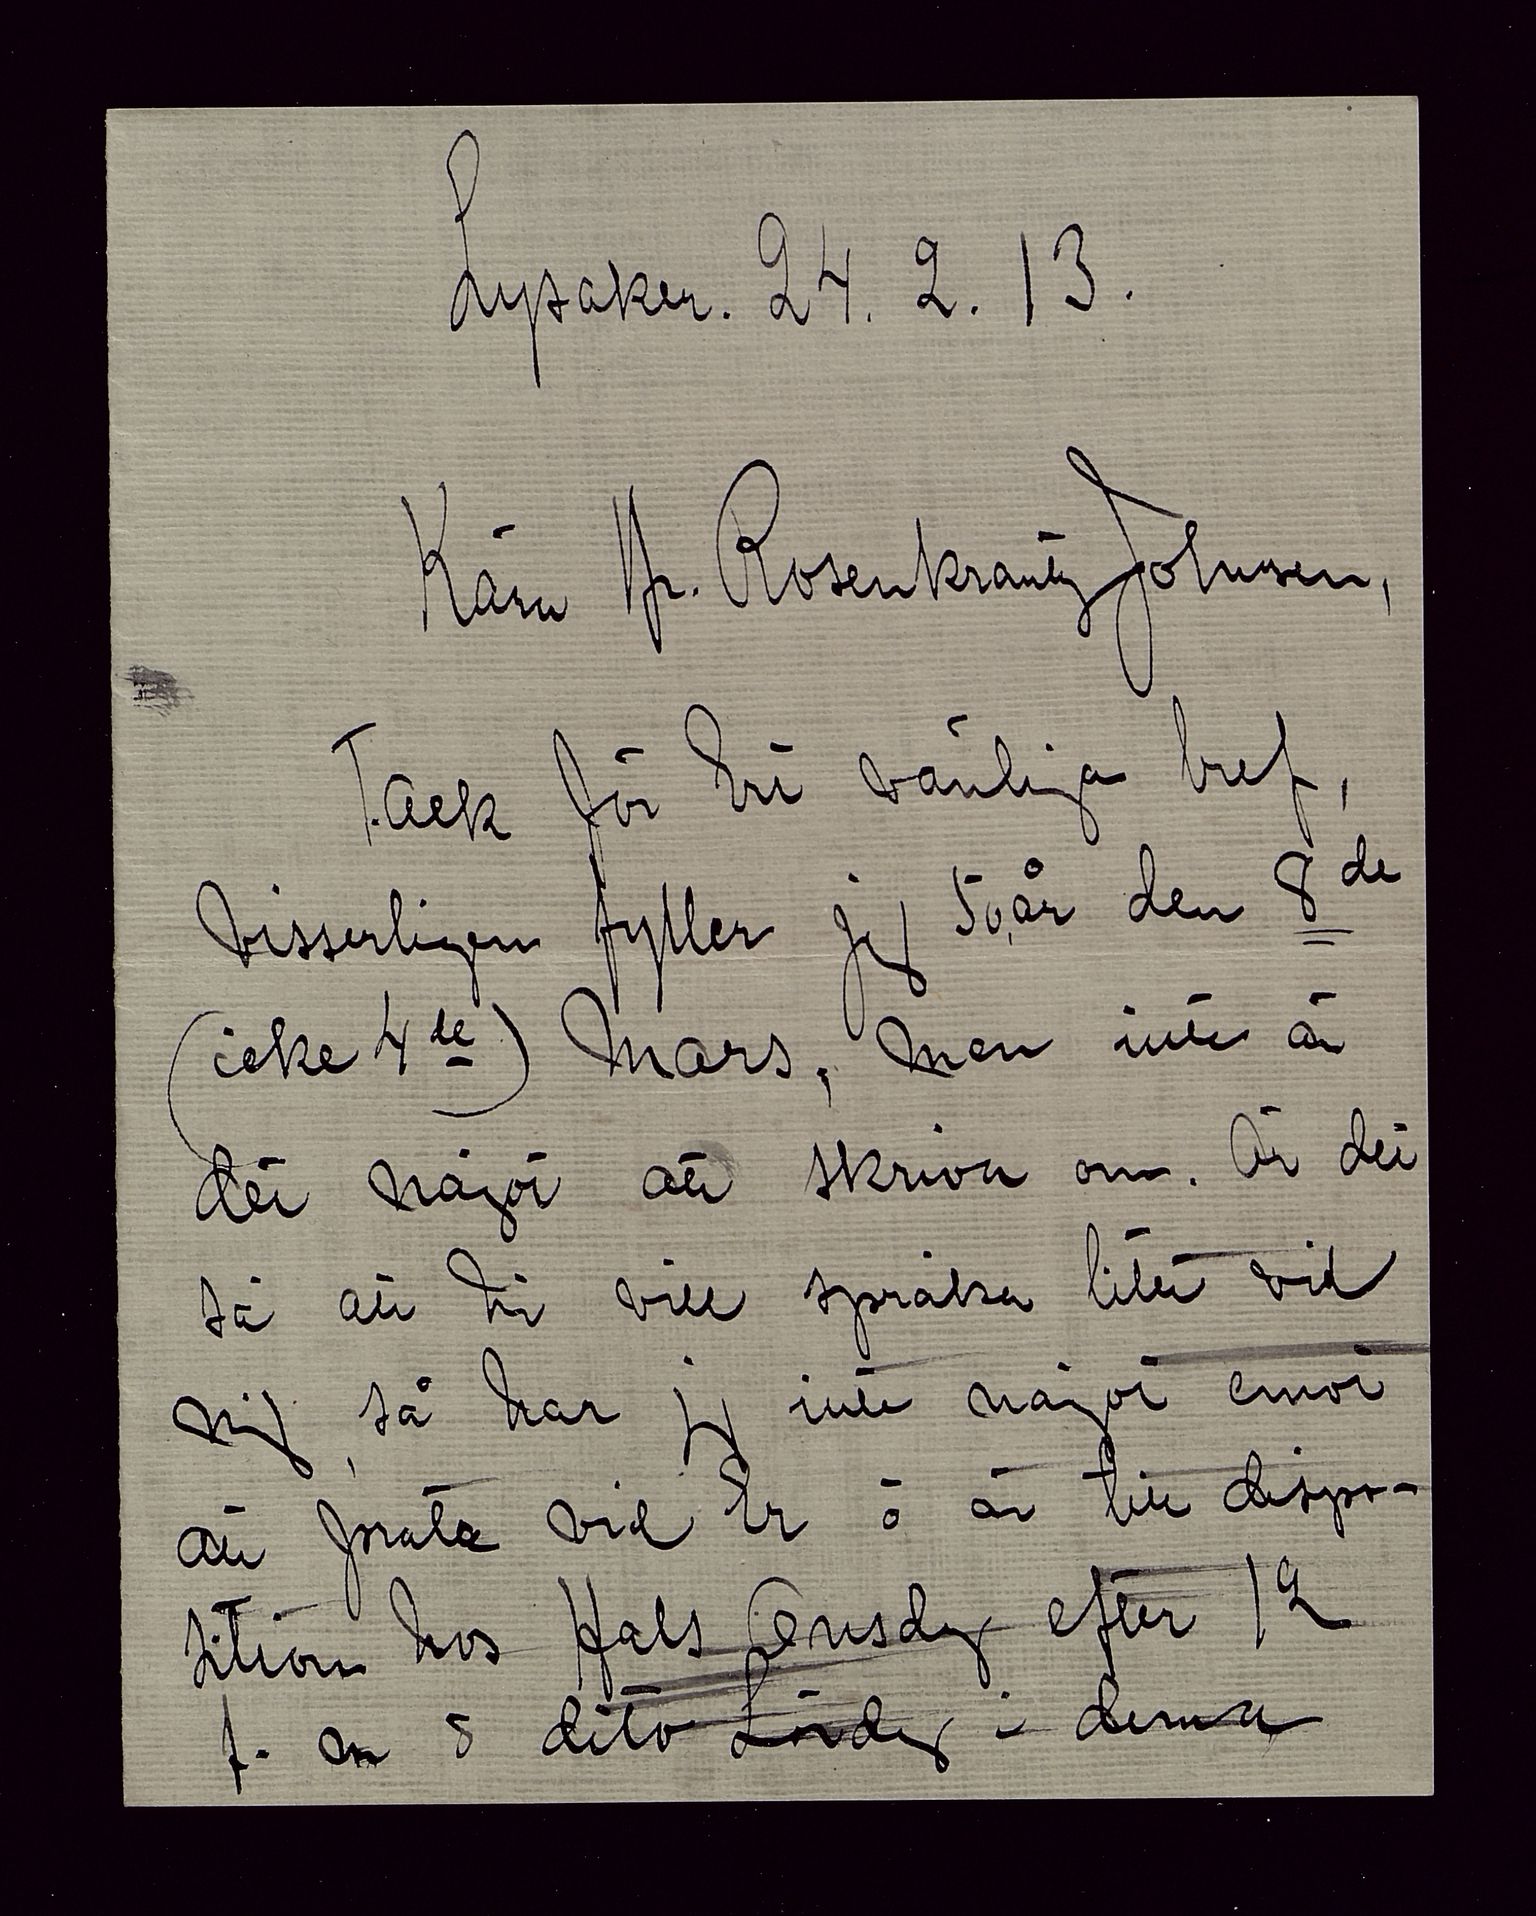 Lysaker. 24. 2. 13.
Kära Hr. Rosenkrantz Johnsen,
Tack för Ert vänliga bref,
visserligen fyller jag 50 år den 8de
(icke 4de) Mars, men inte är
det något att skriva om. Är det
så att Ni vill språka litet vid
mig, så har jag inte något emot
att prata vid Er o är till dispo-
sition hos Hals Onsdag efter 12
f. m o dito Lördag i denna